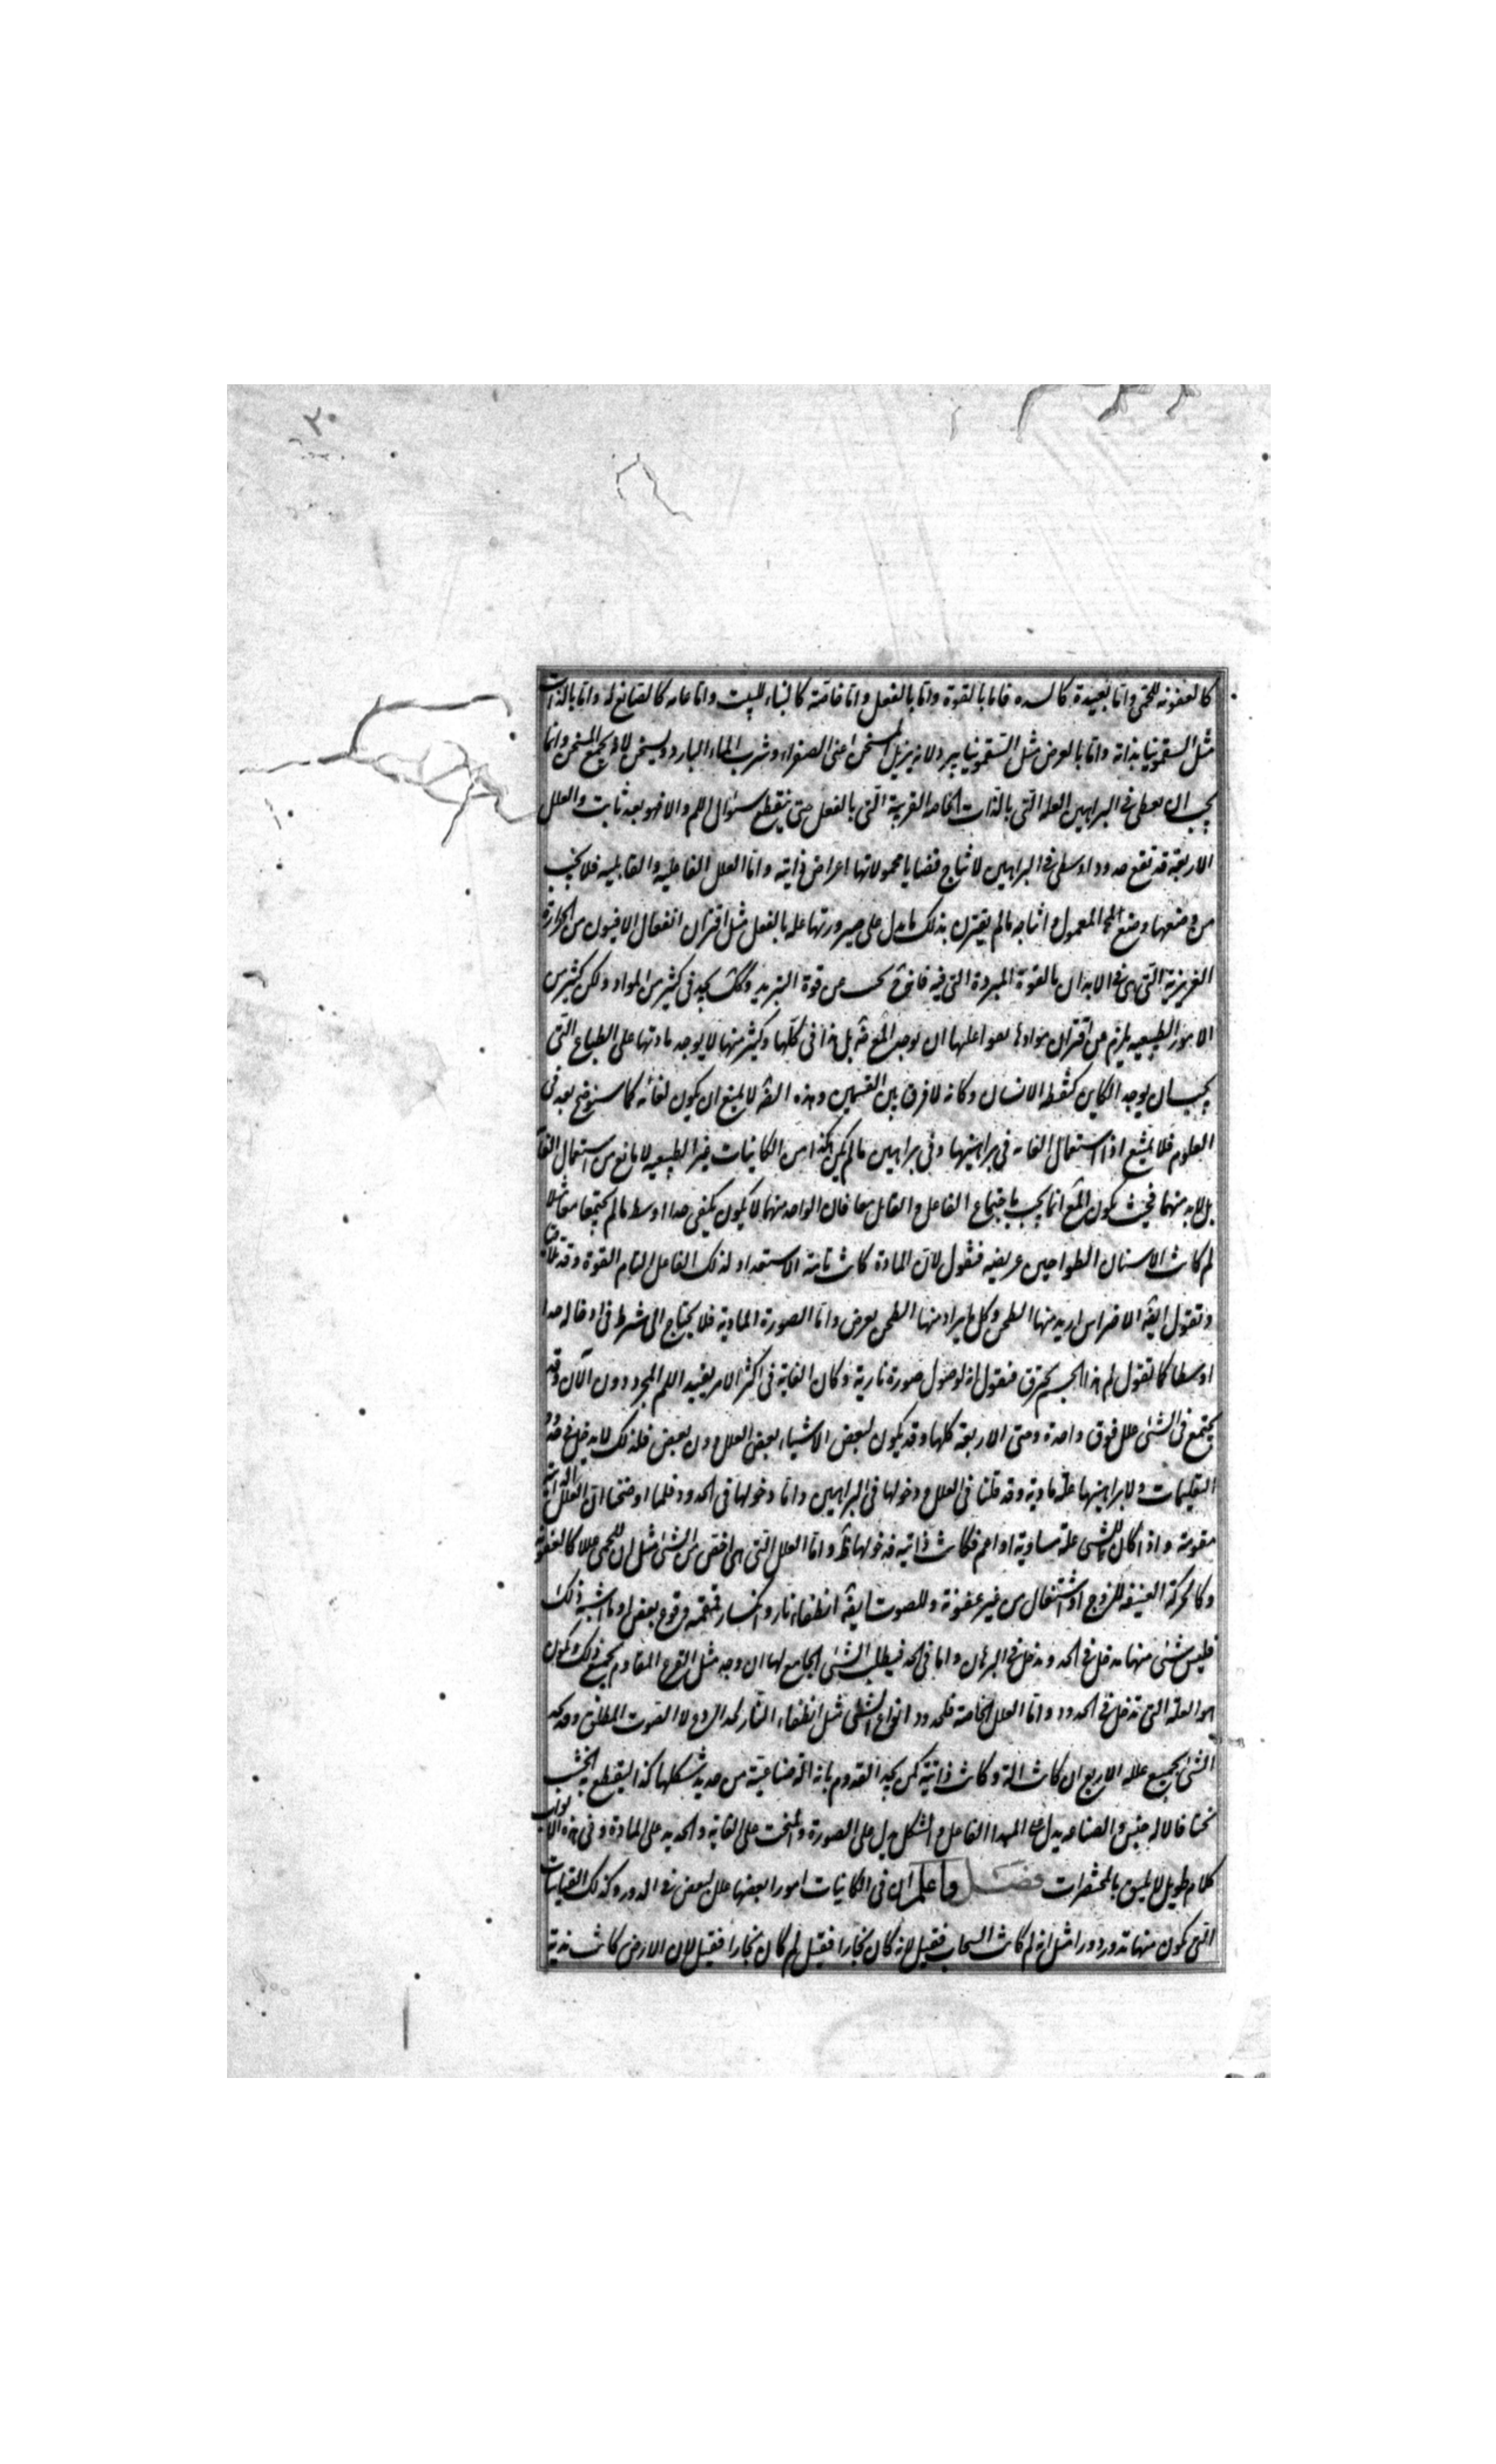 ٢٠
كالعفونه للحمى واما بعيدة كالسده فاما بالقوة واما بالفعل واما خاصة كالبناء للبيت واما عامه كالصانع له واما بالذات
مثل السقمونيا بذاته واما بالعرض مثل السقمونيا يبرد لانه يزيل المسخن اعنى الصفراء وشرب الماء البارد ويسخن لانه يجمع المسخن وانما
يجب ان يعطى فى البراهين العله التى بالذات الخاصه القريبة التى بالفعل حتى ينقطع سؤال اللم والا فهو بعد ثابت والعلل
الاربعة قد تقع حدودا وسطى فى البراهين لانتاج قضايا محمولاتها اعراض ذاتيه واما العلل الفاعليه والقابليه فلا يجب
من وضعها وضع المعمول وانتاجه مالم يقترن بذلك ما يدل على صيرورتها علة بالفعل مثل اقتران انفعال الافيون من الحرارة
الغريزية التى فى الابدان بالقوة المبردة التى فيه فانه ح من قوة التبريد وكك يجب فى كثير من المواد ولكن كثير من
الامور الطبيعيه يلزم من اقتران موادها بفواعلها ان يوجد بل هذا فى كلها وكثير منها لا يوجد مادتها على الطباع التى
يجب ان يوجد الكاين كنطفة الانسان وكانه لا فرق بين القسمين وهذه لا يمنع ان يكون لغايه كما سنوضح بعد فى
العلوم فلا يمتنع اذا استعمال الغايه فى براهينها وفى براهين مالم يكن هكذا من الكاينات غير الطبيعيه لا مانع من استعمال
بل لابد منهما فحيث يكون انما يجب باجتماع الفاعل والقابل معا فان الواحد منهما لا يكون يكفى حدا اوسط مالم يجتمعا معا مثلا
لم كانت الاسنان الطواحين عريضه فنقول لان المادة كانت تامة الاستعداد لذلك الفاعل التام القوة وقد تلاقيا
ونقول ايضا الاضراس اريد منها الطحن وكل ما يراد منها الطحن يعرض واما الصورة الماديه فلا يحتاج الى شرط فى ادخاله حدا
اوسطا كما تقول لم هذا الجسم يحرق فنقول انه لوصول صورة نارية وكان الغاية فى اكثر الامر يفيد اللم المجرد دون الان وقد
يجتمع فى الشئ علل فوق واحدة وحتى الاربعة كلها وقد يكون لبعض الاشياء بعض العلل دون بعض فلذلك لا يدخل فى حدود
التعليمات ولا براهينها علة مادية وقد قلنا فى العلل ودخولها فى البراهين واما دخولها فى الحدود فلما اوضحنا ان العلل الذاتيه
مقومة واذا كان للشئ علة مساوية او اعم فكانت ذاتية فدخولها ظ واما العلل التى هى اخص من الشئ مثل ان للحمى عللا كالعفونة
وكالحركة العنيفه للروح او اشتعال من غير عفونة وللصوت ايضا انطفاء نار وانكسار قمقمة وقرع بعض له وما اشبه ذلك
فليس شئ منها يدخل فى الحد ويدخل فى البرهان واما فى الحد فيطلب الشئ الجامع لها ان وجد مثل القرع المقاوم يجمع ذلك ويكون
هو العلة التى تدخل فى الحدود واما العلل الخاصة فلحدود انواع الشئ مثل انطفاء النار لحد الرعد لا الصوت المطلق وقد يحد
الشئ بجميع علله الاربع ان كانت له وكانت ذاتية كمن يحد القدوم بانه آلة صناعية من حديد شكلها كذا ليقطع به الخشب
نحتا فالآلة جنس والصناعيه يدل على المبدا الفاعل والشكل يدل على الصورة والنحت على الغايه والحديد على المادة وفى هذه الابواب
كلام طويل لا يليق بالمختصرات فصل واعلم ان فى الكاينات امورا بعضها علل لبعض فى الدور وكذلك القياسات
التى يكون منها تدور دورا مثل انه لم كانت السحاب فقيل لانه كان بخارا فقيل لم كان بخارا فقيل لان الارض كانت ندية